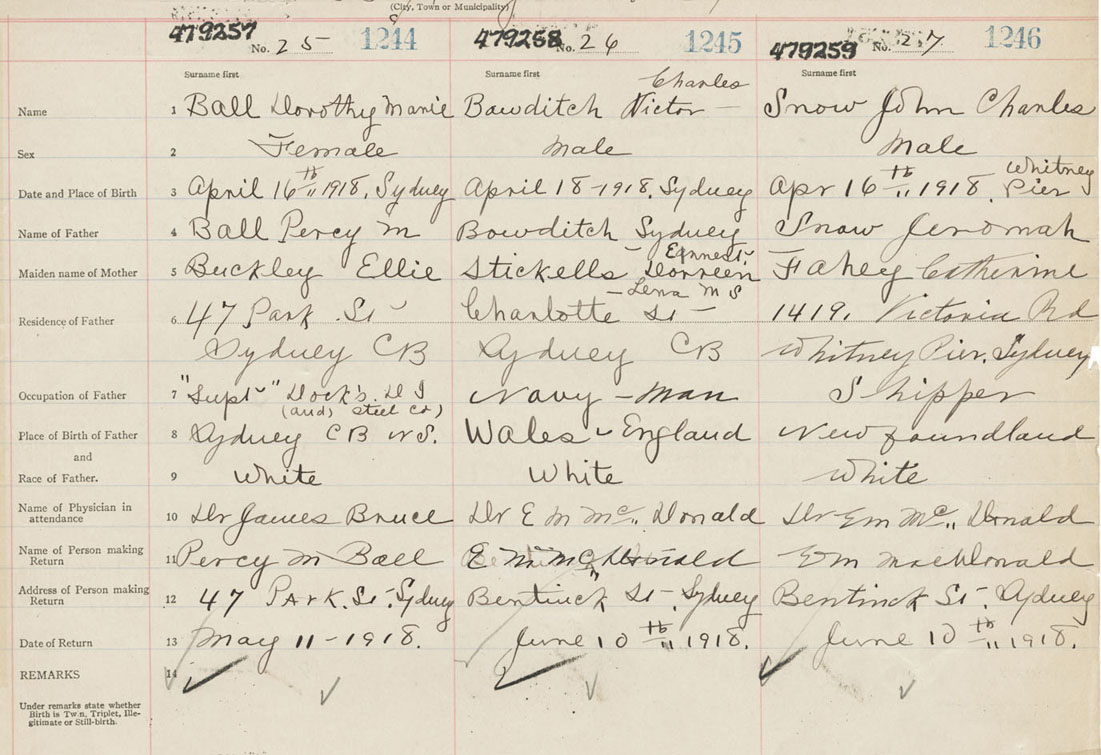 (City, Town or Municipality)
479257 No. 25 1244 479258 No. 26 1245 479259 No. 27 1246
Surname first Surname first Surname first
Charles
Name 1 Ball Dorothy Marie Bowditch Victor — Snow John Charles
Sex 2 Female Male Male
Whitney
Date and Place of Birth 3 April 16th 1918, Sydney April 18-1918, Sydney Apr 16th 1918, Pier
Name of Father 4 Ball Percy M Bowditch Sydney Snow
Ernnest
Maiden name of Mother 5 Buckley Ellie Stickells Dorreen Fahey Catherine
Lena M S
Residence of Father 6 47 Park St Charlotte St 1419, Victoria Rd
Sydney CB Sydney CB Whitney Pier, Sydney
Occupation of Father 7 "Supt" Dock's. D I Navy-man Shipper
(and) steel Co)
Place of Birth of Father 8 Sydney CB N S. Wales - England Newfoundland
and
Race of Father. 9 White White White
Name of Physician in attendance 10 Dr James Bruce Dr E M Mc Donald Dr E M Mc Donald
Name of Person making Return 11 Percy M Ball E M Mc Donald E M MacDonald
Address of Person making Return 12 47 Park. St. Sydney Bentinck St. Sydney Bentinck St. Sydney
Date of Return 13 May 11-1918. June 10th 1918. June 10th 1918.
REMARKS 14
Under remarks state whether
Birth is Twin, Triplet, Ille-
gitimate or Still-birth.